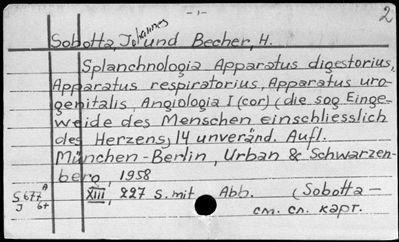 -1- 2
Sobotta, Johannes und Becher, H.
Splanchnologia Apparatus digestorius,
Apparatus respiratorius, Apparatus uro-
genitalis, Angiologia I (cor) (die sog Einge-
weide des Menschen einschliesslich
des Herzens) 14 unveränd. Aufl.
München-Berlin, Urban & Schwarzen-
berg, 1958
XIII, 227 s. mit Abb. (Sobotta-
см. сл. карт.
S 677 A
J 6+